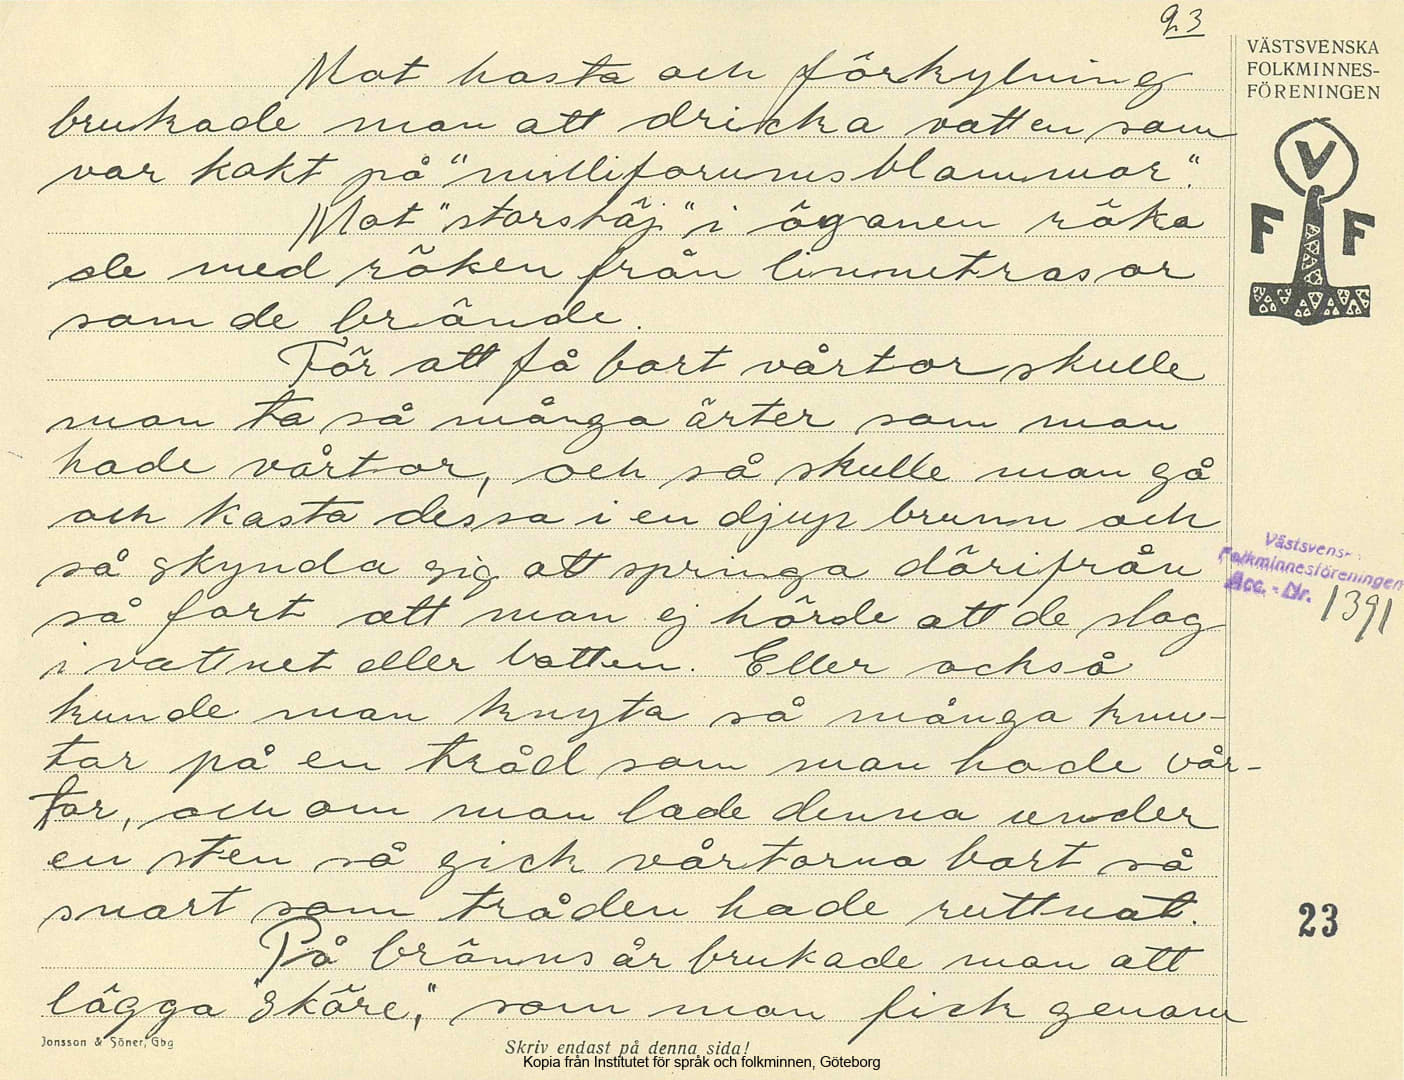 23
VÄSTSVENSKA
FOLKMINNES-
FÖRENINGEN
V
F F
Mot hosta och förkylning
brukade man att dricka vatten som
var kokt på "milliforiumsblommor".
Mot "storstäj" i ögonen röka
de med röken från linnetrasor
som de brände.
För att få bort vårtor skulle
man ta så många ärter som man
hade vårtor, och så skulle man gå
och kasta dessa i en djup brunn och
så skynda sig att springa därifrån
så fort att man ej hörde att de slog
i vattnet eller botten. Eller också
kunde man knyta så många knu-
tar på en tråd som man hade vår-
tor, och om man lade denna under
en sten så gick vårtorna bort så
snart som tråden hade ruttnat.
På brännsår brukade man att
lägga "skäre", som man fick genom
Västsvens
Folkminnesföreningen
Acc. - Nr. 1391
23
Jonsson & Söner, Gbg
Skriv endast på denna sida!
Kopia från Institutet för språk och folkminnen, Göteborg